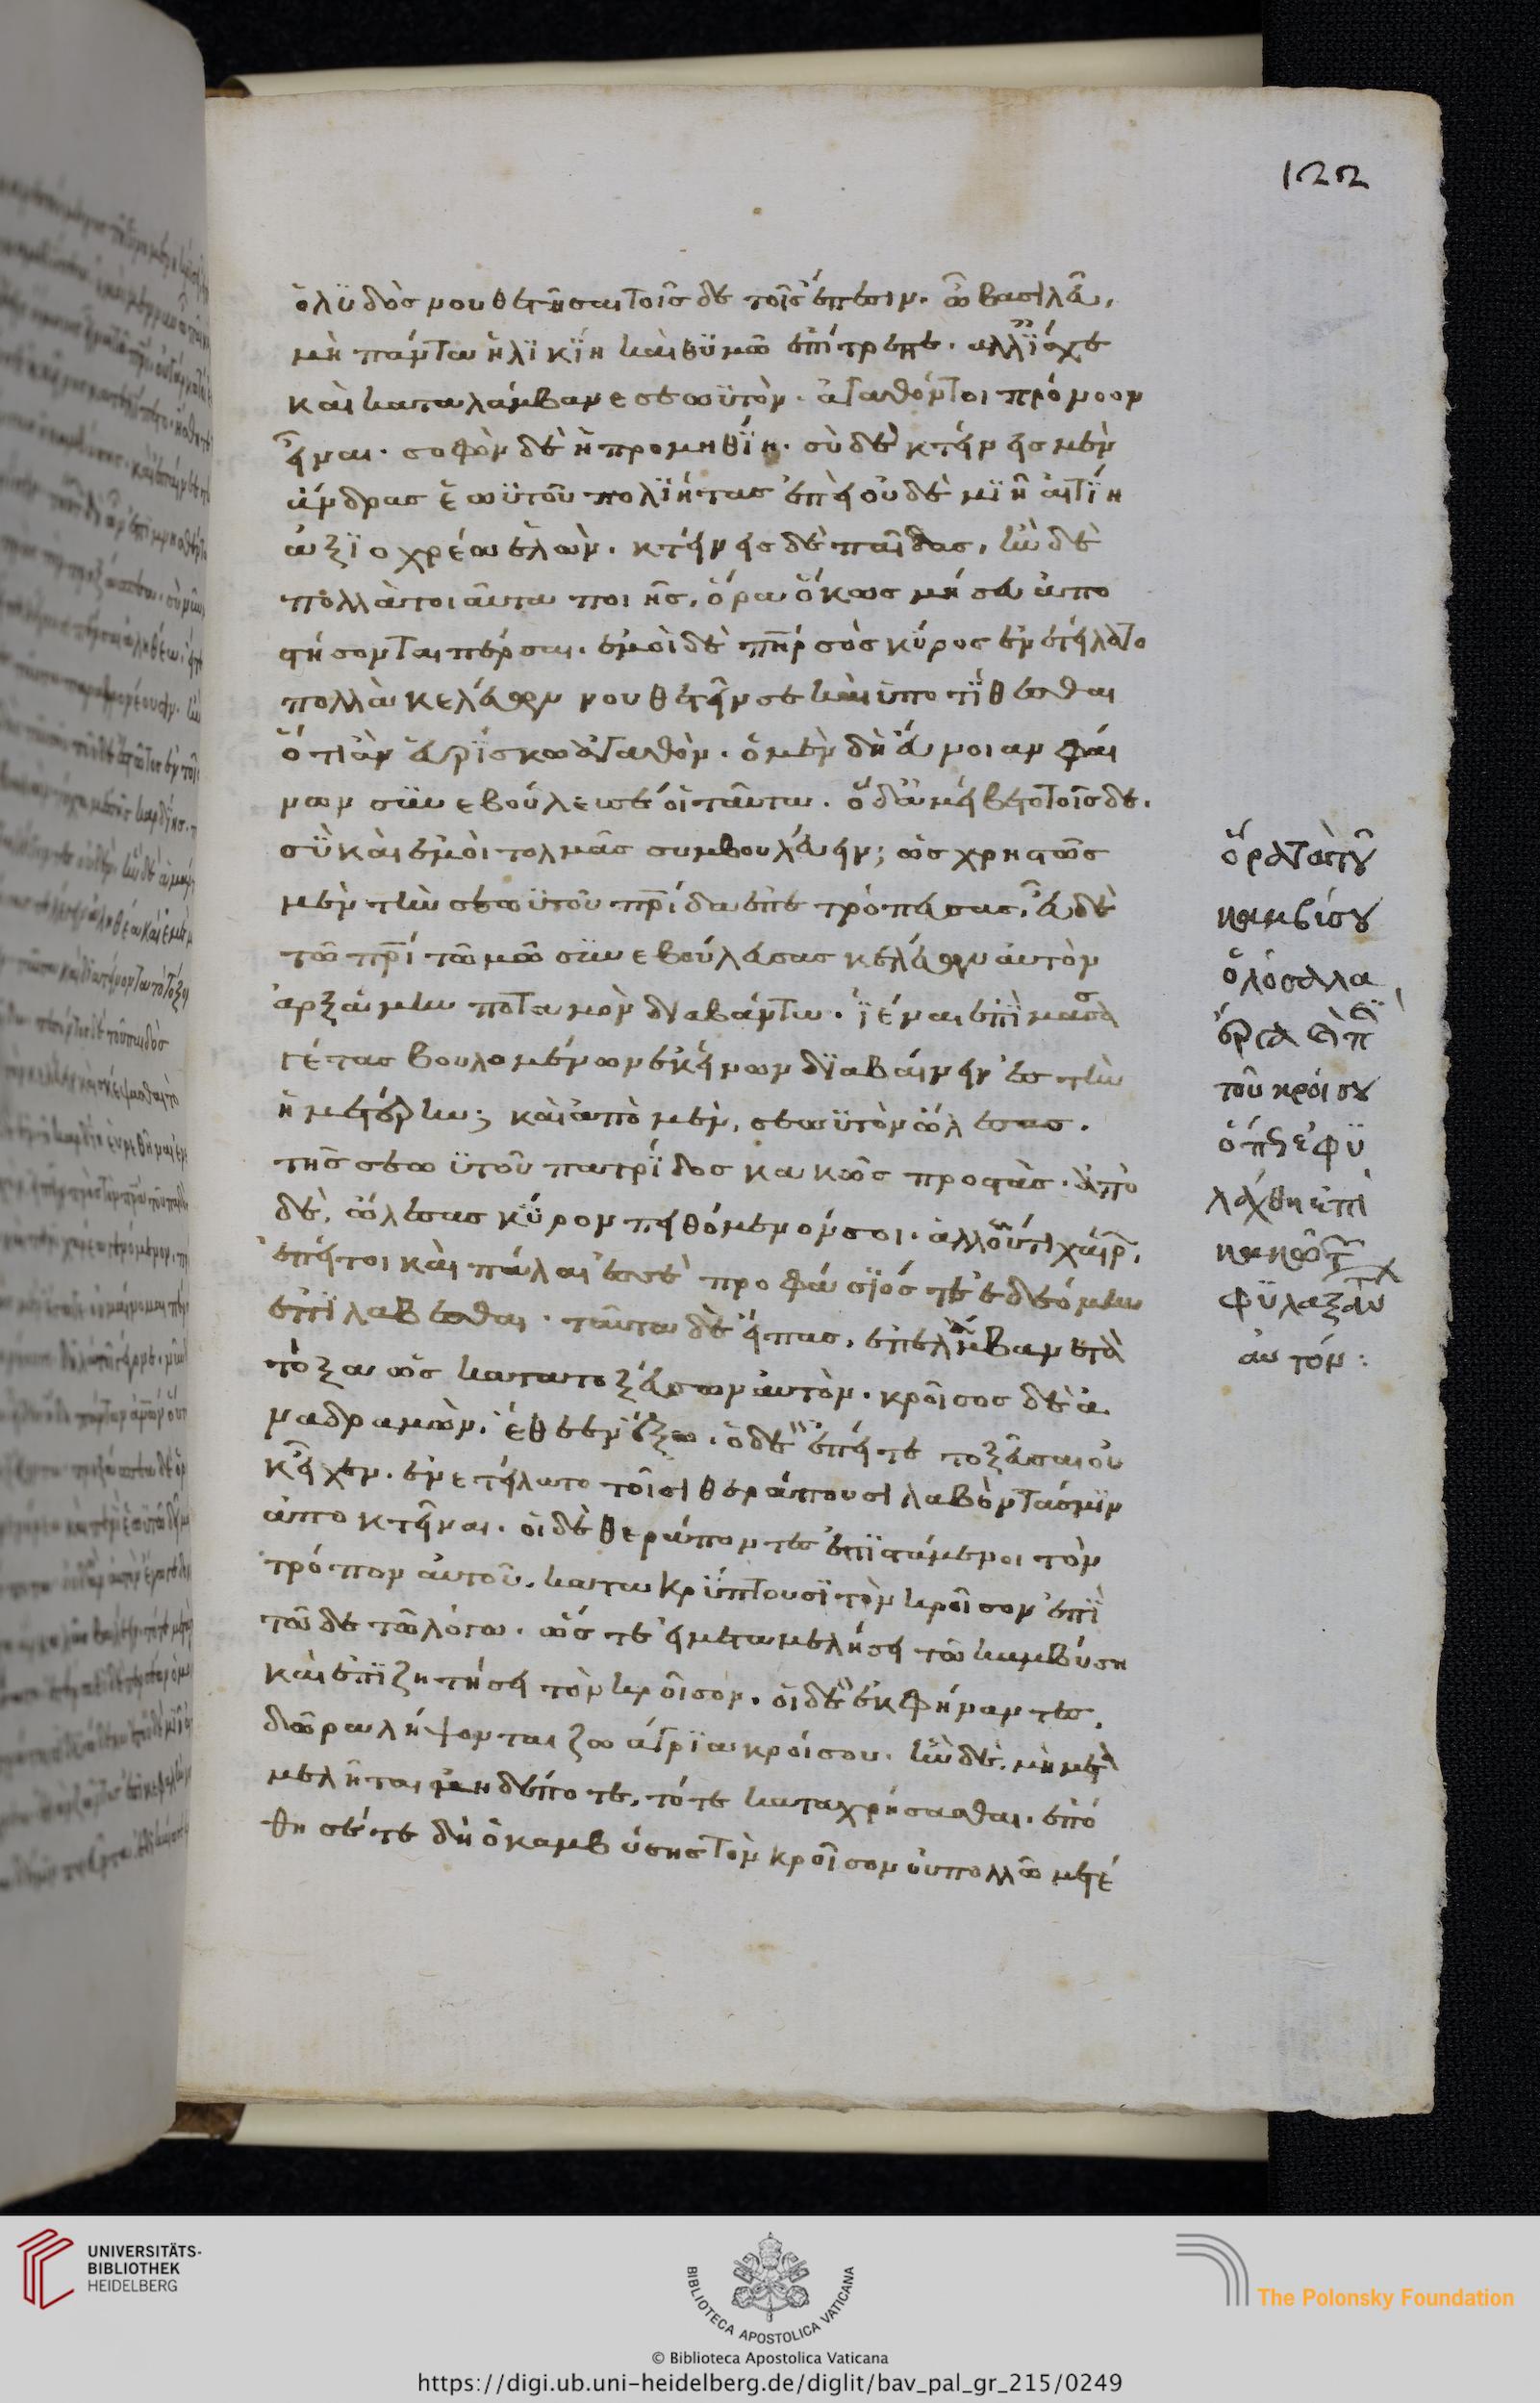 ὁ λϋδὸσ νουθετῆσαι τοῖσδε τοῖσ ἔπεσιν. ὦ βασιλεῦ,
μὴ πάντα ἡλϊκΐη καὶ θϋμῶ ἐπίτρεπε. ἀλλ' ἴσχε
καὶ καταλάμβανε σεωϋτὸν. ἀγαθόν τοι πρόνοον
εἶναι. σοφὸν δὲ ἡ προμηθΐη. σὺ δὲ κτείνεισ μὲν
ἄνδρασ ἑωϋτοῦ πολϊήτασ ἐπ' οὐδὲ μϊῆ αἰτΐη
ἀξϊοχρέω ἑλὼν. κτείνεισ δὲ παῖδασ, ἢν δὲ
πολλὰ τοιαῦτα ποιῆσ, ὅρα ὅκωσ μή σευ ἀπο
στήσονται πέρσαι. ἐμοὶ δὲ πηρ σὸσ κύροσ ἐνετέλετο
πολλὰ κελεύων νουθετεῖν σε καὶ ὑποτΐθεσθαι
ὅτι ἂν εὑρΐσκω ἀγαθὸν. ὁ μὲν δὴ εὔνοιαν φαί
νων συνεβούλευσέ οἱ ταῦτα. ὁ δ' ἀμείβετο τοῖσδε.
σὺ καὶ ἐμοὶ τολμᾶσ συμβουλεύειν; ὃσ χρηστῶσ
μὲν τὴν σεωϋτοῦ πρίδα ἐπετρόπευσασ, εὖ δὲ
τῶ πρὶ τῶ μῶ συνεβούλευσασ κελεύων αὐτὸν
ἀράξην ποταμὸν διαβάντα. ἰέναι ἐπὶ μασσα
γέτασ βουλομένων ἐκείνων δϊαβαίνειν ἐσ τὴν
ἡμετέρην; καὶ ἀπὸ μὲν, σεωϋτὸν ὤλεσασ.
τῆσ σεωϋτοῦ πατρΐδοσ κακῶσ προστὰσ. ἀπὸ
δὲ, ὤλεσασ κῦρον πειθόμενόν σοι. ἀλλ' οὔτι χαίρ,
ἐπεί τοι καὶ πάλαι ἐσ σὲ προφάσϊόσ τε ἐδεόμην
ἐπϊλαβέσθαι. ταῦτα δὲ εἴπασ, ἐπελάμβανε τὰ
τόξα ὡσ κατατοξεύσων αὐτὸν. κροῖσοσ δὲ ἀ
ναδραμὼν, ἔθεεν ἔξω. ὁ δὲ ἐπεί τε τοξεῦσαι οὐ
κ εἶχεν. ἐνετείλατο τοῖσι θεράπουσι λαβόντασ μϊν
ἀποκτεῖναι. οἱ δὲ θεράποντεσ ἐπϊστάμενοι τὸν
τρόπον αὐτοῦ, κατακρΰπτουσϊ τὸν κροῖσον ἐπὶ
τῶδε τῶ λόγω. ὥσ τε εἰ μεταμελήσει τῶ καμβύση
καὶ ἐπϊζητήσει τὸν κροῖσον. οἱ δὲ ἐκφήναντεσ,
δῶρα λήψονται ζωάγρϊα κροίσου. ἢν δὲ, μὴ μετα
μελῆται μηδέποτε, τότε καταχρήσασθαι. ἐπό
θησέ τε δὴ ὁ καμβύσησ τὸν κροῖσον οὐ πολλῶ μετέ
κακῶσ
φϋλαξαν
αὐτόν:
τοῦ κροίσου
122
UNIVERSITÄTS-
BIBLIOTHEK
HEIDELBERG
BIBLIOTECA APOSTOLICA VATICANA
The Polonsky Foundation
© Biblioteca Apostolica Vaticana
https://digi.ub.uni-heidelberg.de/diglit/bav_pal_gr_215/0249